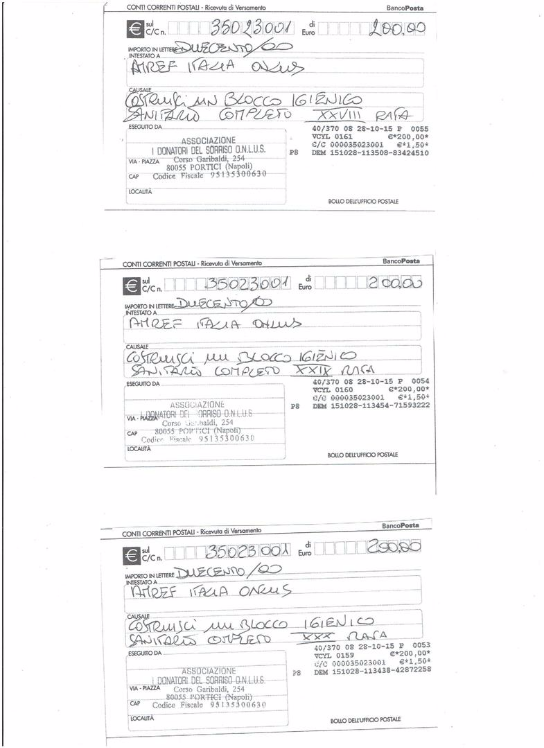 CONTI CORRENTI POSTALI - Ricevuta di Versamento BancoPosta
€ sul C/C n. 35023001 di Euro 200,00
IMPORTO IN LETTERE DUECENTO/00
INTESTATO A
AMREF ITALIA ONLUS
CAUSALE
COSTRUISCI UN BLOCCO IGIENICO
SANITARIO COMPLETO XXVIII RATA
ESEGUITO DA
40/370 08 28-10-15 P 0055
VCYL 0161 €*200,00*
C/C 000035023001 €*1,50*
P8 DEM 151028-113508-83424510
ASSOCIAZIONE
I DONATORI DEL SORRISO O.N.L.U.S.
VIA - PIAZZA Corso Garibaldi, 254
80055 PORTICI (Napoli)
CAP Codice Fiscale 95135300630
LOCALITÀ
BOLLO DELL'UFFICIO POSTALE
CONTI CORRENTI POSTALI - Ricevuta di Versamento BancoPosta
€ sul C/C n. 35023001 di Euro 200,00
IMPORTO IN LETTERE DUECENTO/00
INTESTATO A
AMREF ITALIA ONLUS
CAUSALE
COSTRUISCI UN BLOCCO IGIENICO
SANITARIO COMPLETO XXIX RATA
ESEGUITO DA
40/370 08 28-10-15 P 0054
VCYL 0160 €*200,00*
C/C 000035023001 €*1,50*
P8 DEM 151028-113454-71593222
ASSOCIAZIONE
VIA - PIAZZA I DONATORI DEL SORRISO O.N.L.U.S.
Corso Garibaldi, 254
CAP 80055 PORTICI (Napoli)
Codice Fiscale 95135300630
LOCALITÀ
BOLLO DELL'UFFICIO POSTALE
CONTI CORRENTI POSTALI - Ricevuta di Versamento BancoPosta
€ sul C/C n. 35023001 di Euro 200,00
IMPORTO IN LETTERE DUECENTO/00
INTESTATO A
AMREF ITALIA ONLUS
CAUSALE
COSTRUISCI UN BLOCCO IGIENICO
SANITARIO COMPLETO XXX RATA
ESEGUITO DA
40/370 08 28-10-15 P 0053
VCYL 0159 €*200,00*
C/C 000035023001 €*1,50*
P8 DEM 151028-113438-42872258
ASSOCIAZIONE
I DONATORI DEL SORRISO O.N.L.U.S.
VIA - PIAZZA Corso Garibaldi, 254
80055 PORTICI (Napoli)
CAP Codice Fiscale 95135300630
LOCALITÀ
BOLLO DELL'UFFICIO POSTALE